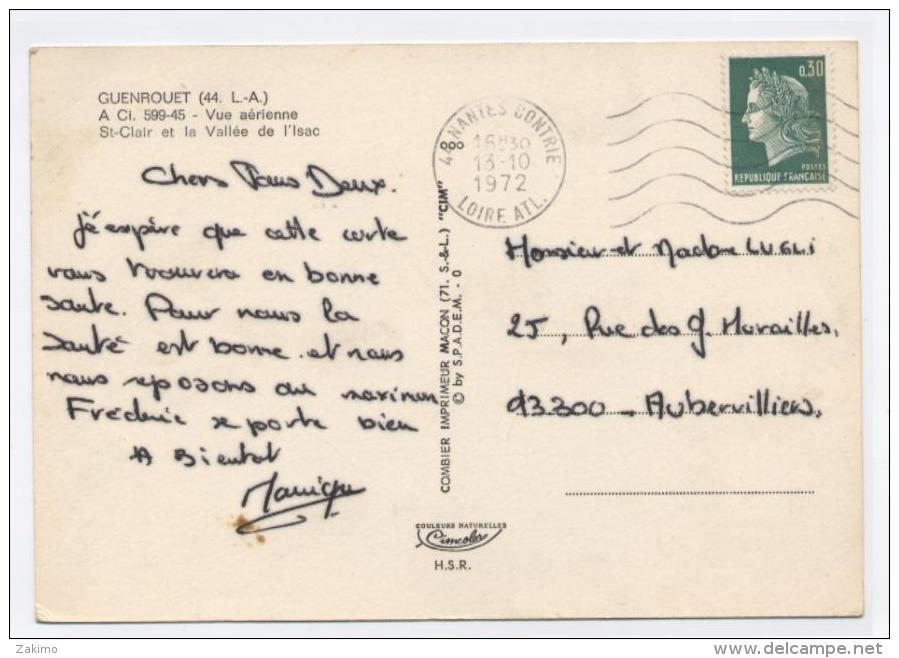 GUENROUET (44. L.-A.)
A Ci. 599-45 - Vue aérienne
St-Clair et la Vallée de l'Isac
Chers Tous Deux.
J'éspère que cette carte
vous trouvera en bonne
sante. Pour nous la
santé est bonne et nous
nous reposons au maximum
Frédéric se porte bien
A Bientot
Monique
COMBIER IMPRIMEUR MACON (71. S.-&-L.) "CIM"
© by S.P.A.D.E.M. - 0
COULEURS NATURELLES
Cimcolor
H.S.R.
44 NANTES CONTRIE
16H30
13-10
1972
LOIRE ATL.
0.30
POSTES
REPUBLIQUE FRANÇAISE
Monsieur et Madame LUGLI
25, Rue des g. Murailles.
93300 - Aubervilliers.
Zakimo
www.delcampe.net